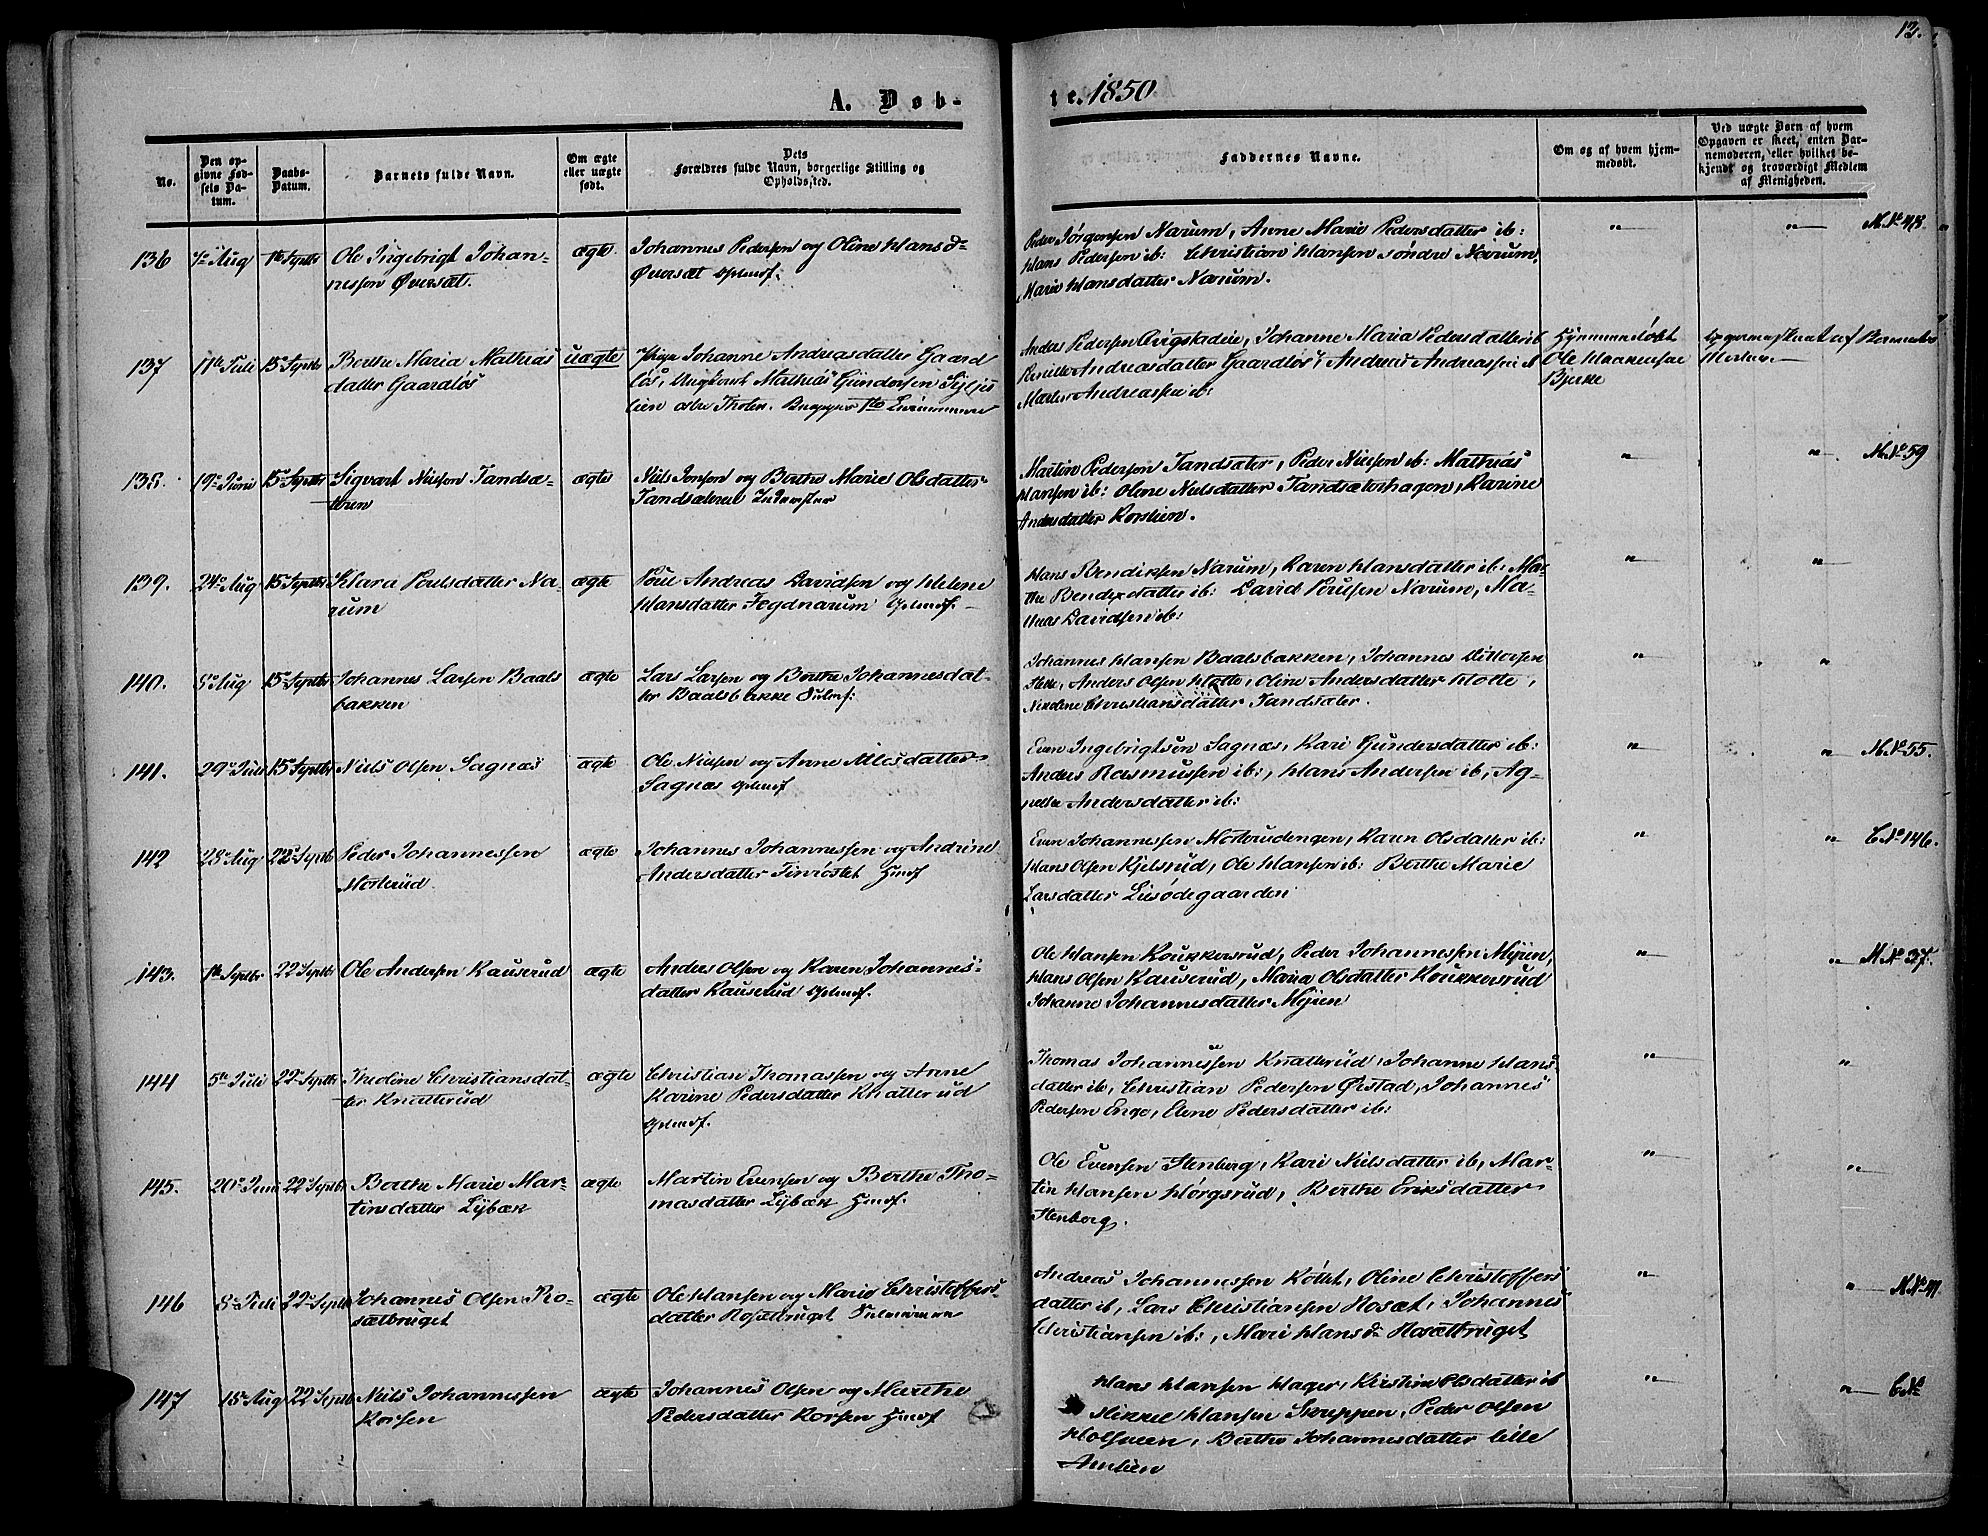 12.
A. Døb-
te. 1850
No.
Den op-
givne Fød-
sels Da-
tum.
Daabs-
Datum.
Barnets fulde Navn.
Om ægte
eller uægte
født.
Dets
Forældres fulde Navn, borgerlige Stilling og
Opholdssted.
Faddernes Navne.
Om og af hvem hjem-
medøbt.
Ved uægte Børn af hvem
Opgaven er skeet, enten Bar-
nemoderen, eller hvilket be-
kjendt og troværdigt Medlem
af Menigheden.
136
Aug
Septbr
Ole Ingebrigt Johan-
nessen Øversæt.
ægte
Johannes Pedersen og Oline Hans d
Øversæt
Peder Jørgensen Narum, Anne Marie Pedersdatter ib:
Hans Pedersen ib: Christian Hansen søndre Narum,
Marie Hansdatter Narum.
137
11te Juli
15 Septbr
Berthe Maria Mathias
datter Gaardløs
uægte
Pige Johanne Andreasdatter Gaard
løs, Ungkarl Mathias Gundersen
lien østre Thoten.
Anders Pedersen Johanne Maria Pedersdatter ib
Pernille Andreasdatter Gaardløs, Andreas Andreassen
Martin Andreassen ib:
Hjemmedøbt
Ole Haakensen
Bjerke
af Barnets
Moder
138.
19 Juni
15 Septbr
Sigvart Nielsen Tandsæ-
teren
ægte
Niels Jonsen og Berthe Marie Olsdatter
Tandsæteren Inderster
Martin Pedersen Tandsæter, Peder Nielsen ib: Mathias
Hansen ib: Olene Nielsdatter Tandsæterhagen, Karine
Andersdatter Korslien.
M.No 59
139.
24 Aug
15 Septbr
Klara Poulsdatter Na-
rum
ægte
Poul Andreas Davidsen og Helene
Hansdatter Jegdnarum
Hans Bendiksen Narum, Karen Hansdatter ib: Mar-
the Bendixdatter ib: David Poulsen Narum, Ma-
thias Davidsen ib:
140.
8 Aug
15 Septbr
Johannes Larsen Baals
bakken
ægte
Lars Larsen og Berthe Johannesdat-
ter Baalsbakke
Johannes Hansen Baalsbakken, Johannes Ditlevsen
Anders Olsen Holte, Oline Andersdatter Holte,
Nicoline Christiansdatter Tandsæter.
141.
29 Juli
15 Septbr
Niels Olsen Sagnæs
ægte
Ole Nielsen og Anne Nilsdatter
Sagnæs
Even Ingebrigtsen Sagnæs, Kari Gundersdatter ib:
Anders Rasmussen ib:, Hans Andersen ib, Ag-
nethe Andersdatter ib:
M.No 55.
142
28 Aug
22 Septb
Peder Johannessen
Mosterud
ægte
Johannes Johannessen og Andrine
Andersdatter Finrøstet
Even Johannessen Mosterudengen, Karen Olsdatter ib:
Hans Olsen Kjelsrud, Ole Hansen ib: Berthe Marie
Larsdatter Liesødegaarden
C.No 146.
143.
1te Septbr
22 Septbr
Ole Andersen Kauserud
ægte
Anders Olsen og Karen Johannes-
datter Kauserud
Ole Hansen Koukkersrud, Peder Johannessen Myren,
Hans Olsen Kauserud, Maria Olsdatter Koukkersrud
Johanne Johannesdatter Myren
M No 37.
144
5te Juli
22 Septbr
Thedine Christiansdat-
ter Knatterud
ægte
Christian Thomassen og Anne
Karine Pedersdatter Knatterud
Thomas Johannessen Knatterud, Johanne Hans
datter ib, Christian Pedersen Ørstad, Johannes
Pedersen Enge, Elene Pedersdatter ib:
145.
20 Juni
22 Septbr
Berthe Marie Mar-
tinsdatter Lybæk
ægte
Martin Evensen og Berthe Tho-
masdatter Lybæk
Ole Evensen Stenberg, Kari Nielsdatter ib, Mar-
tin Hansen Hørgsrud, Berthe Eriksdatter
Stenberg.
146
8 Juli
22 Septb
Johannes Olsen Ro-
sætbruget
ægte
Ole Hansen og Marie Christoffers-
datter Rosætbruget
Andreas Johannessen Køttet, Oline Christoffers
datter ib, Lars Christiansen Rosæt, Johannes
Christiansen ib:, Mari Hans d Rosætbruget
147
18 Aug
22 Septb
Niels Johannessen
Korsen
ægte
Johannes Olsen og Marthe
Pedersdatter Korsen
Hans Hansen Hager, Kirstine Olsdatter ib
Mikkel Hansen Skruppen, Peder Olsen
Berthe Johannesdatter lille
Amlien
C.No